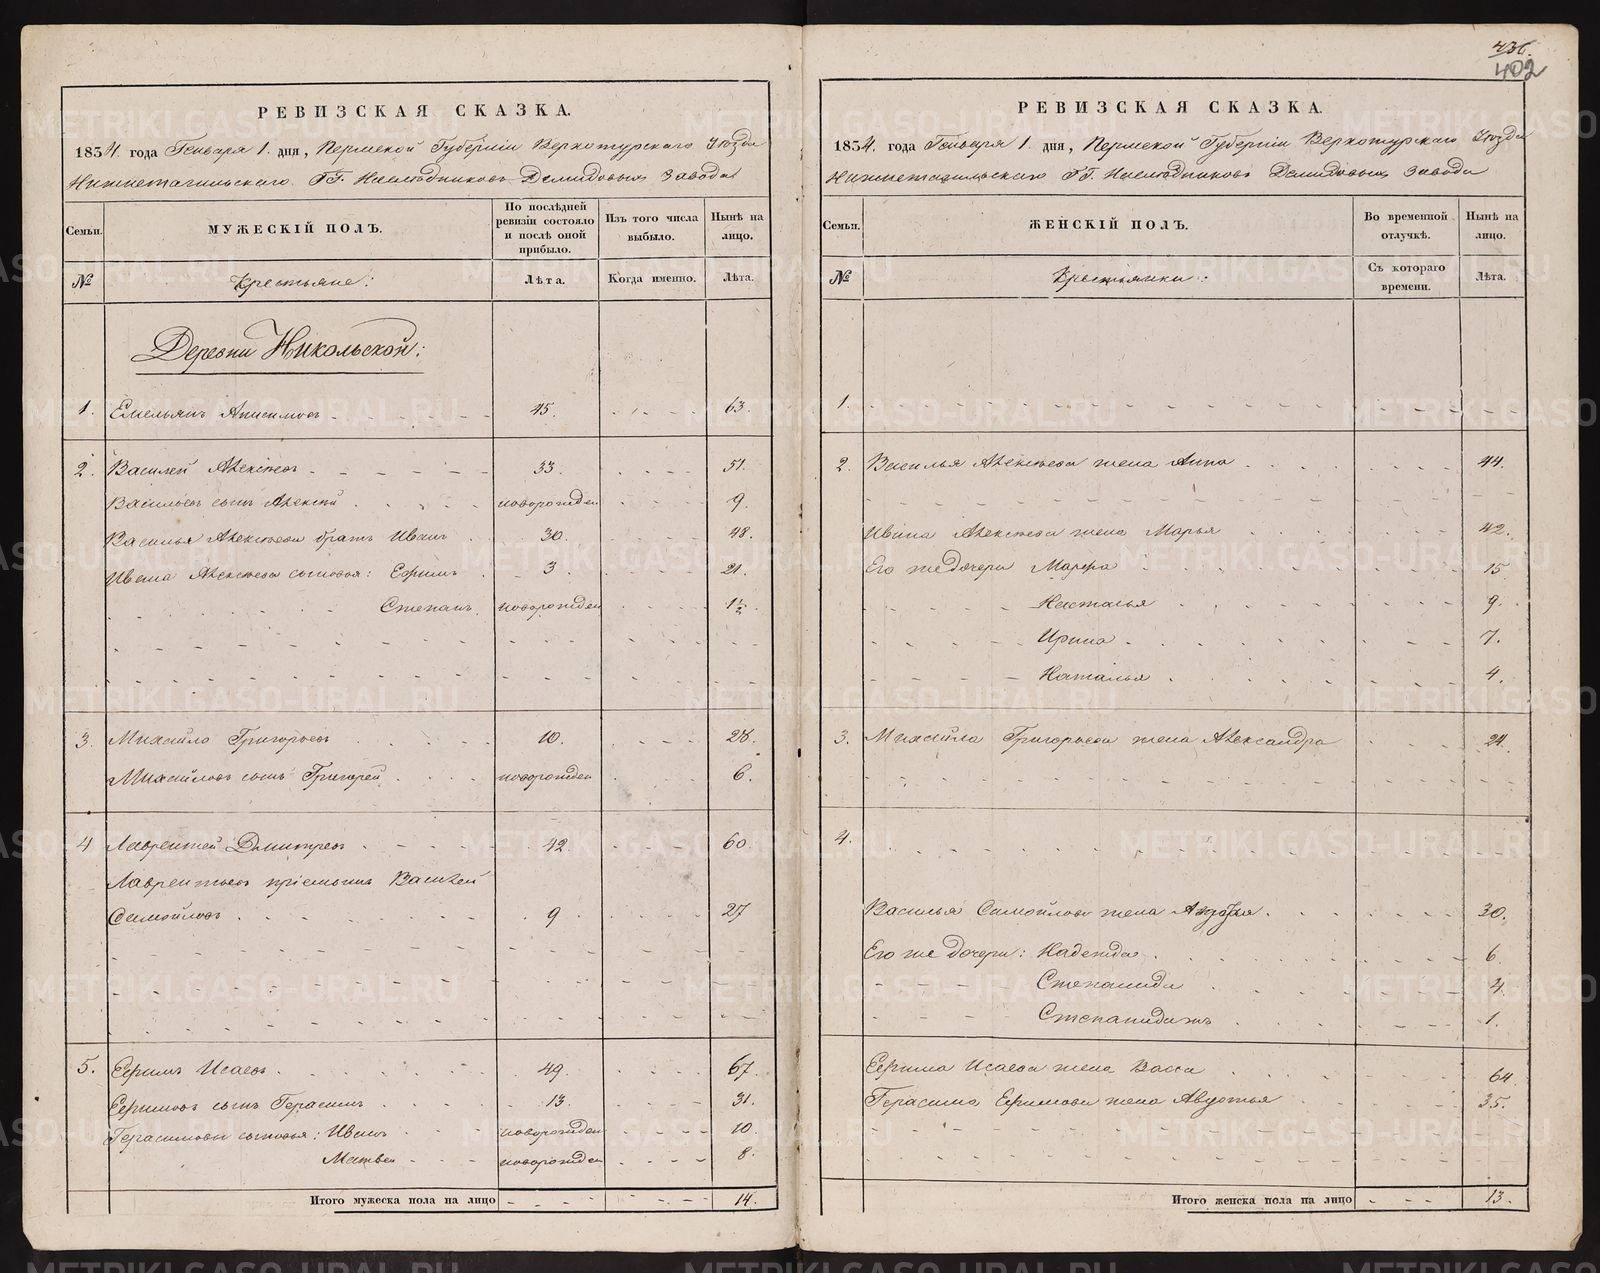 436.
402
РЕВИЗСКАЯ СКАЗКА.
1834. года Генваря 1. дня, Пермской Губерніи Верхотурскаго Уѣзда
Нижнетагильскаго ГГ. Наслѣдниковъ Демидовыхъ Завода
Семьи.
МУЖЕСКІЙ ПОЛЪ.
По послѣдней ревизіи состояло и послѣ оной прибыло.
Изъ того числа выбыло.
Нынѣ на лицо.
№
Крестьяне:
Лѣта.
Когда именно.
Лѣта.
Деревни Никольской:
1. Емельянъ Анисимовъ 45. 63.
2. Василей Алексѣевъ 33. 51.
Васильевъ сынъ Алексѣй новорожден 9.
Василья Алексѣева братъ Иванъ 30. 48.
Ивана Алексѣева сыновья: Ефимъ 3 21.
Степанъ новорожден 1½.
3. Михайло Григорьевъ 10. 28.
Михайловъ сынъ Григорей новорожден 6.
4 Лаврентей Дмитревъ 42 60.
Лаврентьевъ пріемышъ Василей
Самойловъ 9 27
5. Ефимъ Исаевъ 49. 67.
Ефимовъ сынъ Герасимъ 13. 31.
Герасимовы сыновья: Иванъ новорожден 10.
Матвей новорожден 8.
Итого мужеска пола на лицо 14.
РЕВИЗСКАЯ СКАЗКА.
1834. года Генваря 1. дня, Пермской Губерніи Верхотурскаго Уѣзда
Нижнетагильскаго ГГ. Наслѣдниковъ Демидовыхъ Завода
Семьи.
ЖЕНСКІЙ ПОЛЪ.
Во временной отлучкѣ.
Нынѣ на лицо.
№
Крестьянки:
Съ котораго времени.
Лѣта.
1.
2. Василья Алексѣева жена Анна 44.
Ивана Алексѣева жена Марья 42.
Его же дочери Марфа 15
Настасья 9.
Ирина 7.
Наталья 4.
3. Михайла Григорьева жена Александра 24.
4.
Василья Самойлова жена 30.
Его же дочери: Надежда 6.
Степанида 4.
1.
Ефима Исаева жена Васса 64
Герасима Ефимова жена Авдотья 35.
Итого женска пола на лицо 13.
METRIKI.GASO-URAL.RU